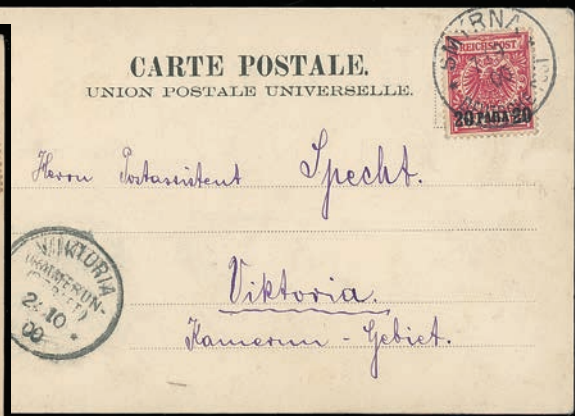 CARTE POSTALE.
UNION POSTALE UNIVERSELLE.
SMYRNA
REICHSPOST
20 PARA 20
Herrn Postassistent Specht.
Viktoria.
Kamerun-Gebiet.
VIKTORIA
KAMERUN-
GEBIET)
10
00